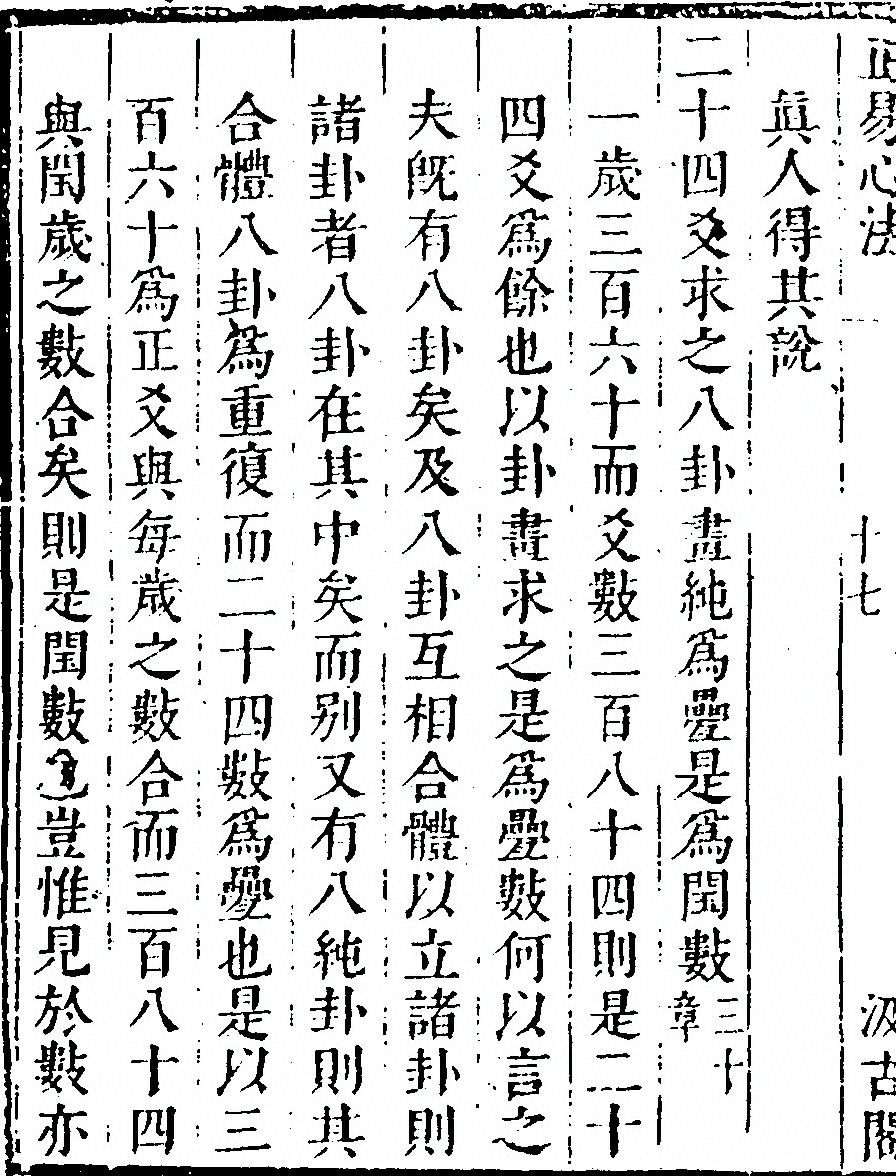 正易心法 十七 汲古閣
眞人得其說
二十四爻求之八卦畫純爲疊是爲閏數三十章
一歲三百六十而爻數三百八十四則是二十
四爻爲餘也以卦畫求之是爲疊數何以言之
夫旣有八卦矣及八卦互相合體以立諸卦則
諸卦者八卦在其中矣而别又有八純卦則其
合體八卦爲重復而二十四數爲疊也是以三
百六十爲正爻與每歲之數合而三百八十四
與閏歲之數合矣則是閏數豈惟見於數亦